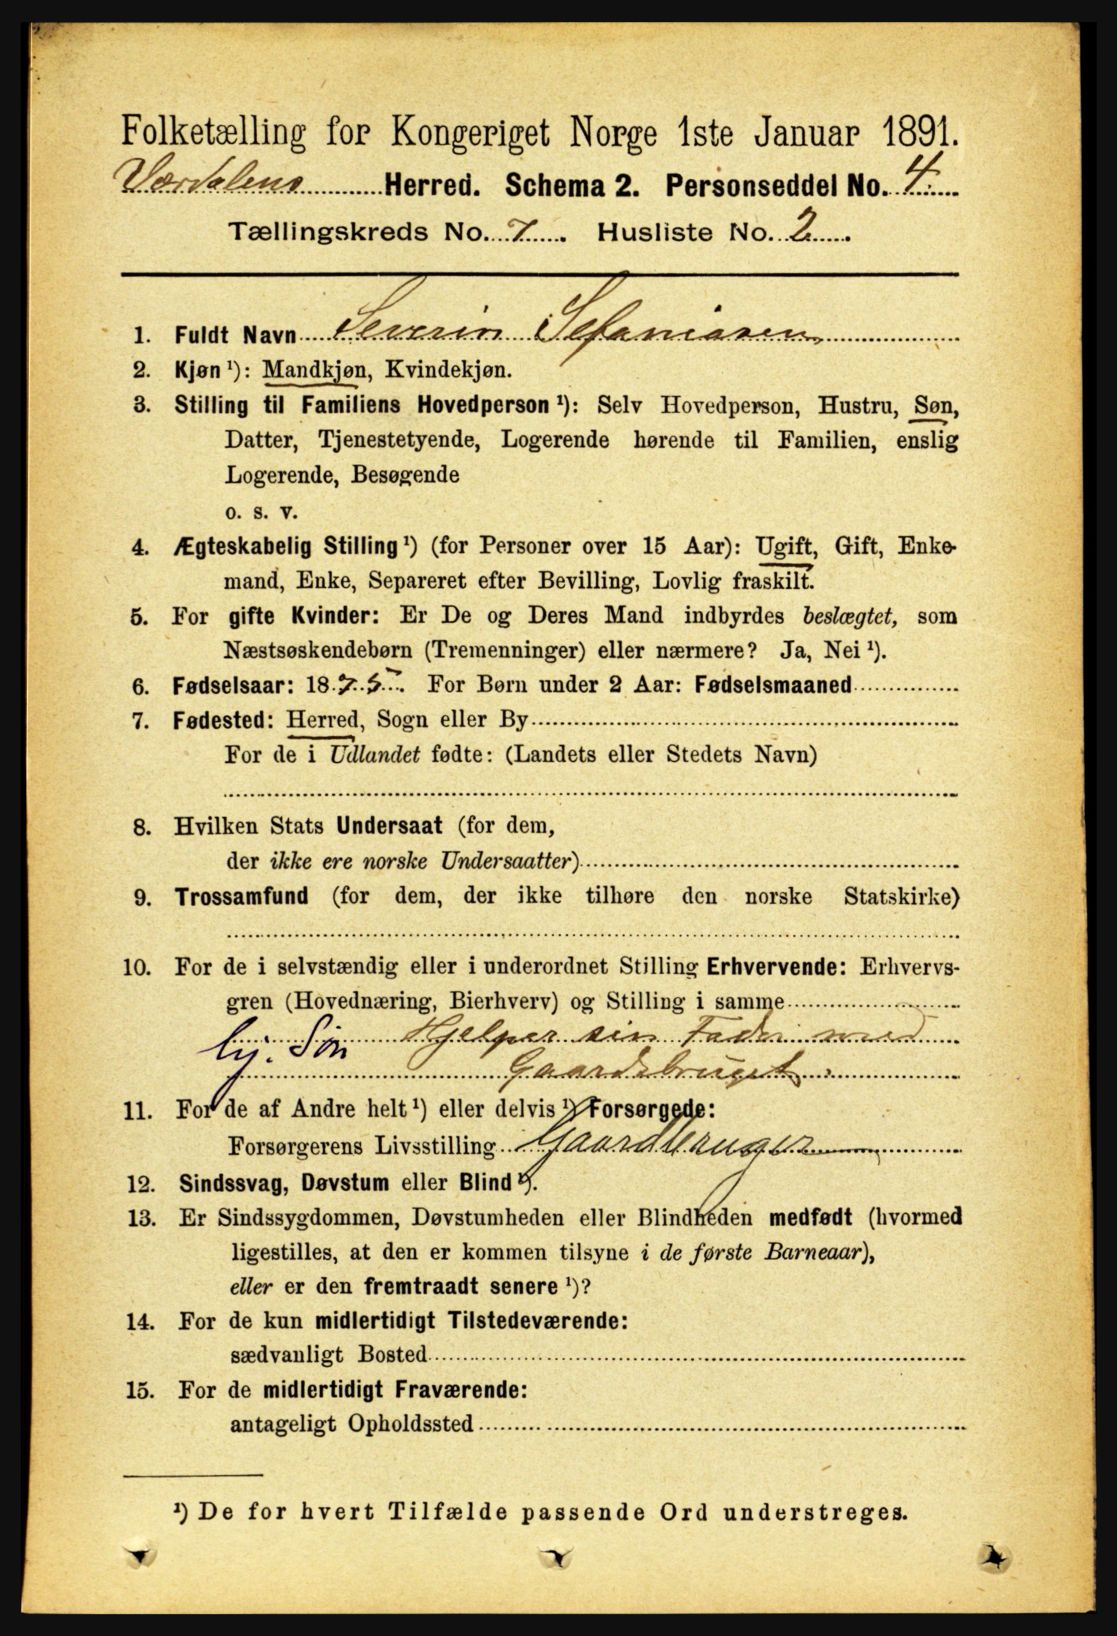 Folketælling for Kongeriget Norge 1ste Januar 1891.
Værdalens Herred. Schema 2. Personseddel No. 4.
Tællingskreds No. 7. Husliste No. 2.
1. Fuldt Navn Severin Sefaniasen
2. Kjøn ¹): Mandkjøn, Kvindekjøn.
3. Stilling til Familiens Hovedperson ¹): Selv Hovedperson, Hustru, Søn,
Datter, Tjenestetyende, Logerende hørende til Familien, enslig
Logerende, Besøgende
o. s. v.
4. Ægteskabelig Stilling ¹) (for Personer over 15 Aar): Ugift, Gift, Enke-
mand, Enke, Separeret efter Bevilling, Lovlig fraskilt.
5. For gifte Kvinder: Er De og Deres Mand indbyrdes beslægtet, som
Næstsøskendebørn (Tremenninger) eller nærmere? Ja, Nei ¹).
6. Fødselsaar: 1875. For Børn under 2 Aar: Fødselsmaaned
7. Fødested: Herred, Sogn eller By
For de i Udlandet fødte: (Landets eller Stedets Navn)
8. Hvilken Stats Undersaat (for dem,
der ikke ere norske Undersaatter)
9. Trossamfund (for dem, der ikke tilhøre den norske Statskirke)
10. For de i selvstændig eller i underordnet Stilling Erhvervende: Erhvervs-
gren (Hovednæring, Bierhverv) og Stilling i samme
Hjelper sin Fader med
hj. Søn Gaardsbruget.
11. For de af Andre helt ¹) eller delvis ¹) Forsørgede:
Forsørgerens Livsstilling Gaardbruger
12. Sindssvag, Døvstum eller Blind ¹).
13. Er Sindssygdommen, Døvstumheden eller Blindheden medfødt (hvormed
ligestilles, at den er kommen tilsyne i de første Barneaar),
eller er den fremtraadt senere ¹)?
14. For de kun midlertidigt Tilstedeværende:
sædvanligt Bosted
15. For de midlertidigt Fraværende:
antageligt Opholdssted
¹) De for hvert Tilfælde passende Ord understreges.